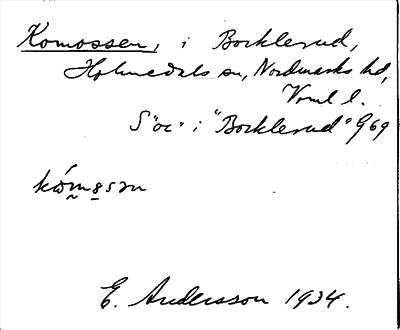 Komossen, i Bocklerud,
Holmedals sn, Nordmarks hd,
Vrml l.
S "oc" i "Bocklerud" G69
kó̤mo̤sən
E. Andersson 1934.